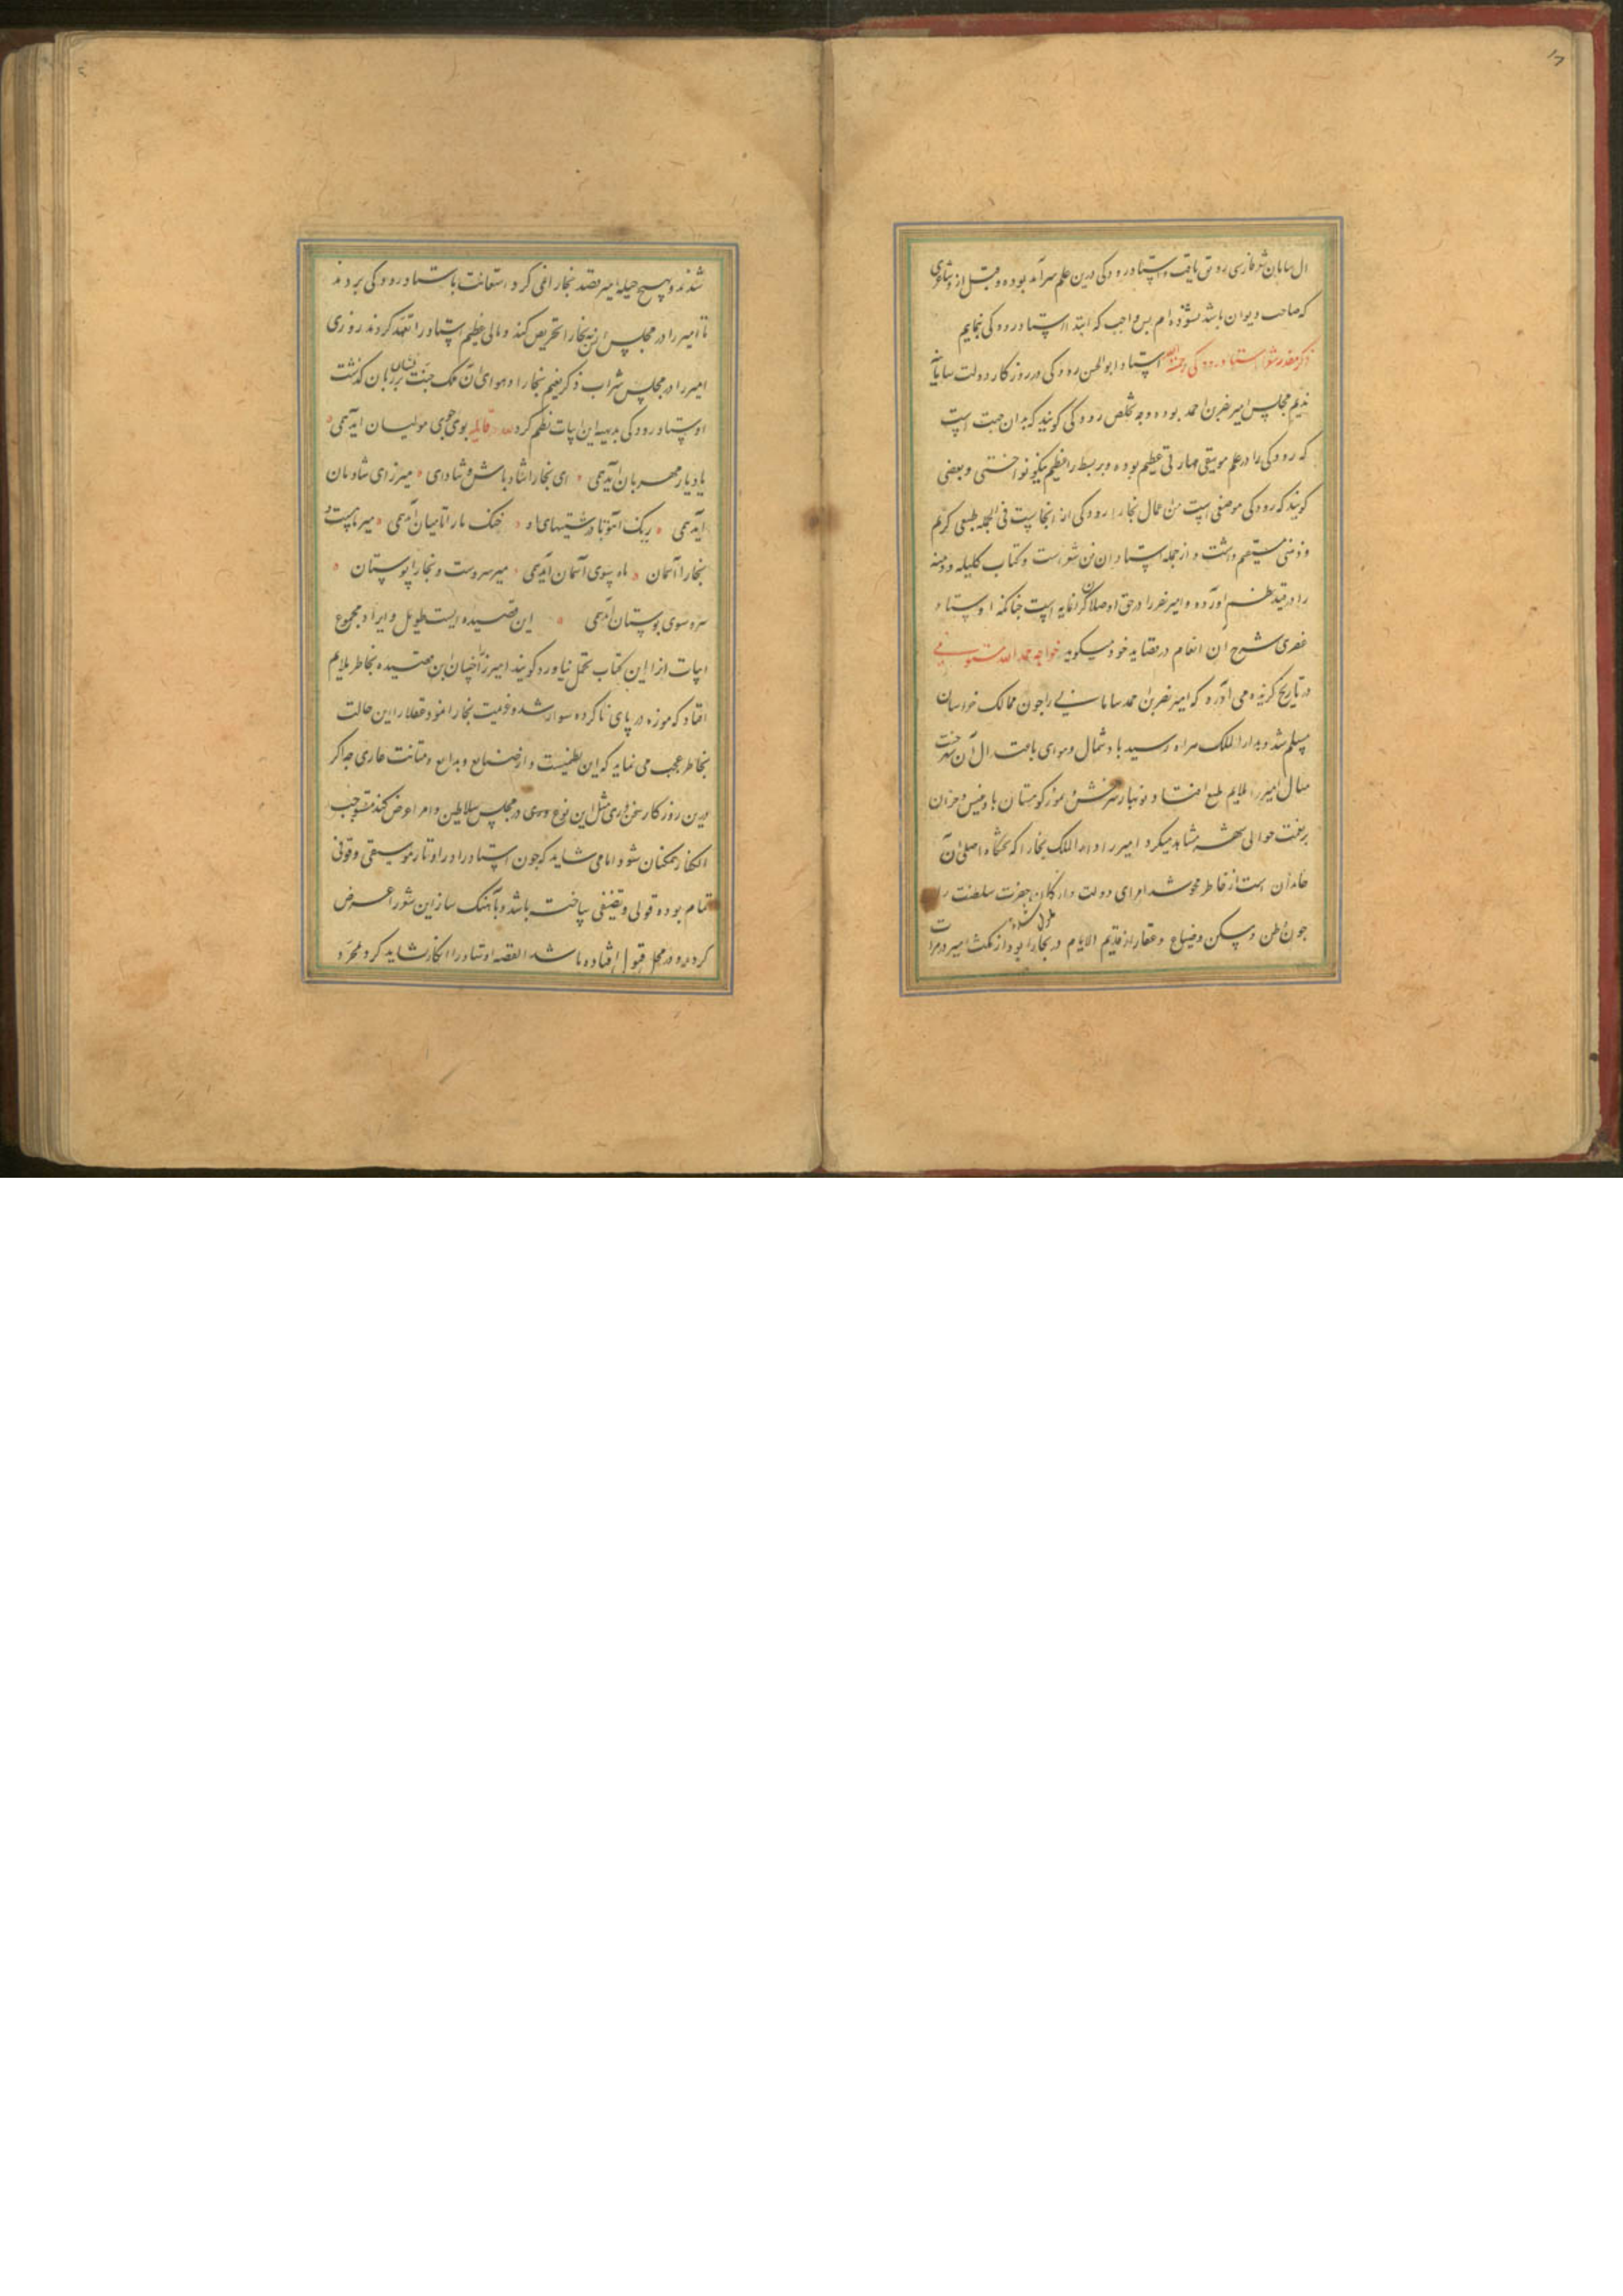 ال سامان شعر فارسی رونق یافت و استاد رودکی درین علم سرآمد بوده و قبل از و شاعری
که صاحب دیوان باشد نشنوده‌ام پس واجب که ابتدا از استاد رودکی نمایم
ذکر استاد رودکی رحمة الله استاد ابوالحسن رودکی در روزکار دولت سامانیه
ندیم مجلس امیر نصر بن احمد بوده و وجه تخلص رودکی کویند که بدان جهت است
که رودکی را در علم موسیقی مهارتی عظیم بوده و بربط را عظیم نیکو نواختی و بعضی
کویند که رودک موضعی است من اعمال بخارا رودکی از انجاست فی الجمله طبعی کریم
و ذهنی مستقیم داشت و از جمله استادان فن شعرست و کتاب کلیله و دمنه
را در قید نظم اورده و امیر نصر را در حق او صلات کرانمایه است چنانکه اوستاد
عنصری شرح آن انعام در قصاید خود میکوید خواجه حمد الله مستوفی
در تاریخ کزیده می اورد که امیر نصر بن احمد سامانی را چون ممالک خراسان
مسلم شد و بدار الملک هراه رسید باد شمال و هوای باعتدال آن شهر جنت
مثال امیر را ملایم طبع افتاد و نوبهار سرخس و تموز کوهستان بادغیس و خزان
حوالی شهر مشاهد میکرد امیر را دار الملک بخارا که تختکاه اصلی آن
خاندان است از خاطر محو شد امرای دولت و ارکان حضرت سلطنت را
چون وطن و مسکن و ضیاع و عقار از قدیم الایام در بخارا بود از مکث امیر در هرات ملول شدند
شدند و بهیچ حیله امیر قصد بخارا نمی کرد استعانت باستاد رودکی بردند
تا امیر را در مجلس انس به بخارا تحریص کند و مالی عظیم استاد را تعهد کردند روزی
امیر را در مجلس شراب ذکر نعیم بخارا و هوای آن ملک جنت نشان بر زبان کذشت
اوستاد رودکی بدیهه این ابیات نظم کرد لله قایله بوی جوی مولیان آیدهمی
یاد یار مهربان آیدهمی ای بخارا شاد باش و شادزی میر زی شادمان
ایدهمی ریک آمو با درشتیهای او خنک ما را تا میان آیدهمی میر ماهست و
بخارا آسمان ماه سوی آسمان آیدهمی میر سروست و بخارا بوستان
سرو سوی بوستان آیدهمی این قصیده ایست طویل و ایراد مجموع
ابیات انرا این کتاب تحمل نیاورد کویند امیر را چنان این قصیده بخاطر ملایم
افتاد که موزه در پای ناکرده سوار شد و عزیمت بخارا نمود عقلا را این حالت
بخاطر عجب می نماید که این نظمیست و از صنایع و بدایع و متانت عاری چه اکر
درین روزکار سخنوری مثل این نوع در مجلس سلاطین و امرا عرض کند مستوجب
انکار همکنان شود اما می شاید که چون استاد را در اوتار و موسیقی وقوفی
تمام بوده قولی و تصنیفی ساخته باشد و بآهنک ساز این شعر را عرض
کرده و در محل قبول افتاده باشد القصه اوستاد را انکار نشاید کرد بمجرد